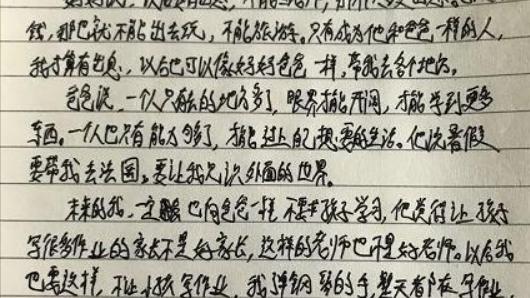 钱，那也就不能出去玩，不能旅游。只有成为他和爸爸一样的人，
我才算有出息，以后也可以像好好爸爸一样，带我去各个地方。
爸爸说，一个人只有去的地方多了，眼界才能开阔，才能学到更多
东西。一个人也只有能力够了，才能过上自己想要的生活。他说暑假
要带我去法国，要让我见识外面的世界。
未来的我，一定也向爸爸一样不要求孩子学习，他觉得让孩子
写很多作业的家长不是好家长，这样的老师也不是好老师。以后我
也要这样，不让小孩写作业，我弹钢琴的手，整天都在写作业，